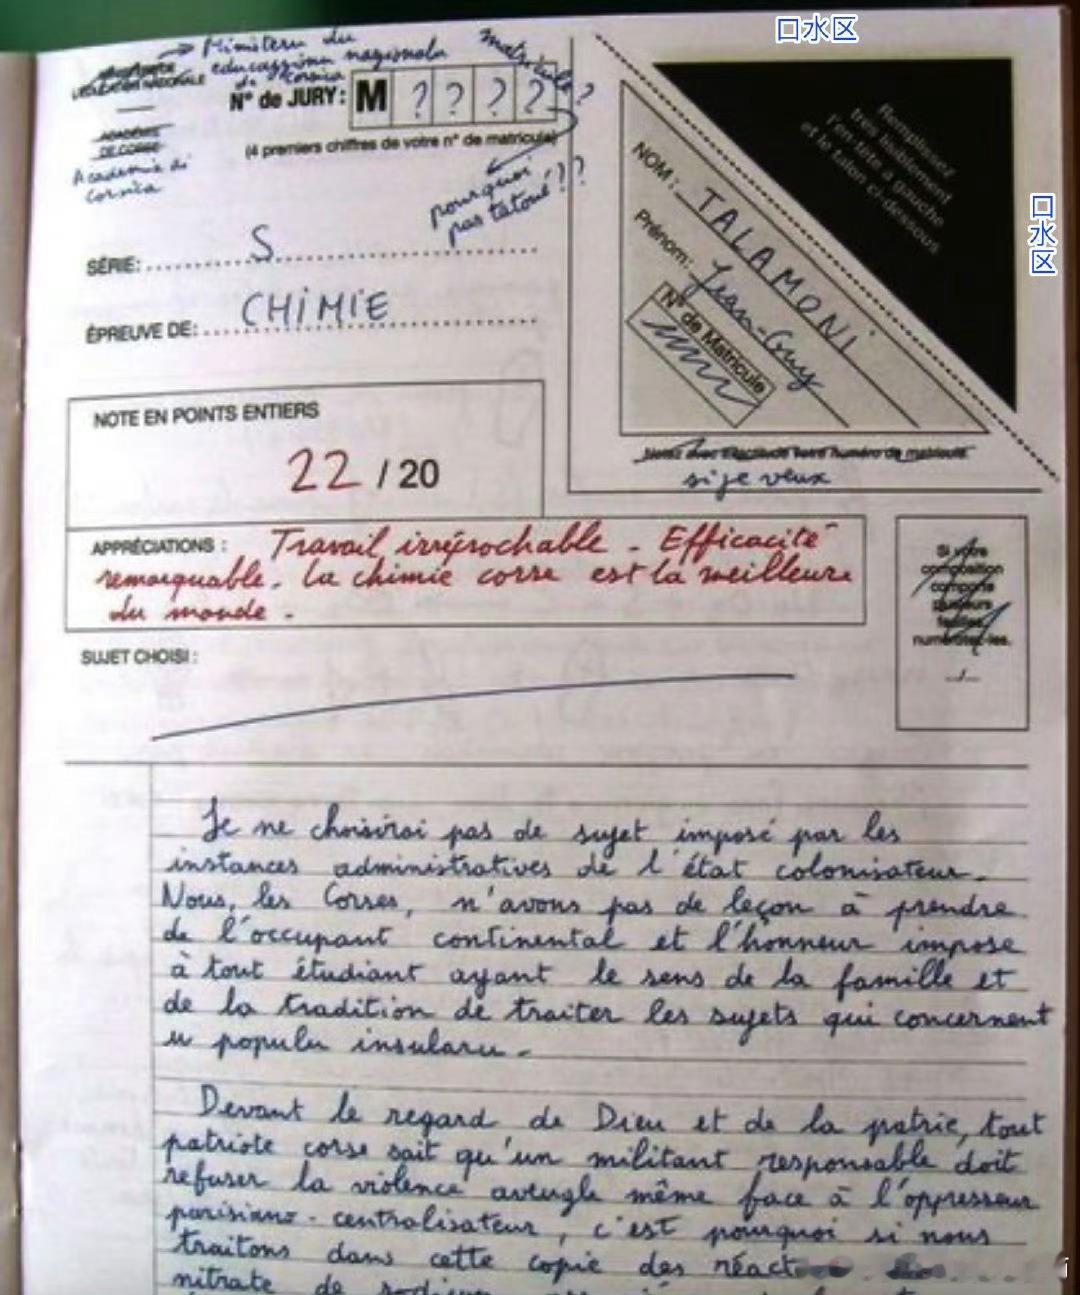 口水区
口水区
→ Ministeru du
educazzioni nazionala
di Corsica
L'ÉDUCATION NATIONALE
ACADÉMIE
DE CORSE
Academia di
Corsica
matricule ?
N° de JURY : M ? ? ? ?
(4 premiers chiffres de votre n° de matricule)
pourquoi
pas tatoué ??
SÉRIE: S
ÉPREUVE DE: CHIMIE
Remplissez
très lisiblement
l'en-tête à gauche
et le talon ci-dessous
NOM : TALAMONI
Prénom: Jean-Guy
N° de Matricule
Notez avec exactitude votre numéro de matricule.
si je veux
NOTE EN POINTS ENTIERS
22 / 20
APPRÉCIATIONS : Travail irréprochable. Efficacité
remarquable. La chimie corse est la meilleure
du monde.
Si votre
composition
comporte
plusieurs
feuilles,
numérotez-les.
.../...
SUJET CHOISI :
Je ne choisirai pas de sujet imposé par les
instances administratives de l'état colonisateur.
Nous, les Corses, n'avons pas de leçon à prendre
de l'occupant continental et l'honneur impose
à tout étudiant ayant le sens de la famille et
de la tradition de traiter les sujets qui concernent
u populu insularu.
Devant le regard de Dieu et de la patrie, tout
patriote corse sait qu'un militant responsable doit
refuser la violence aveugle même face à l'oppresseur
parisiano-centralisateur, c'est pourquoi si nous
traitons dans cette copie des réact
nitrate de